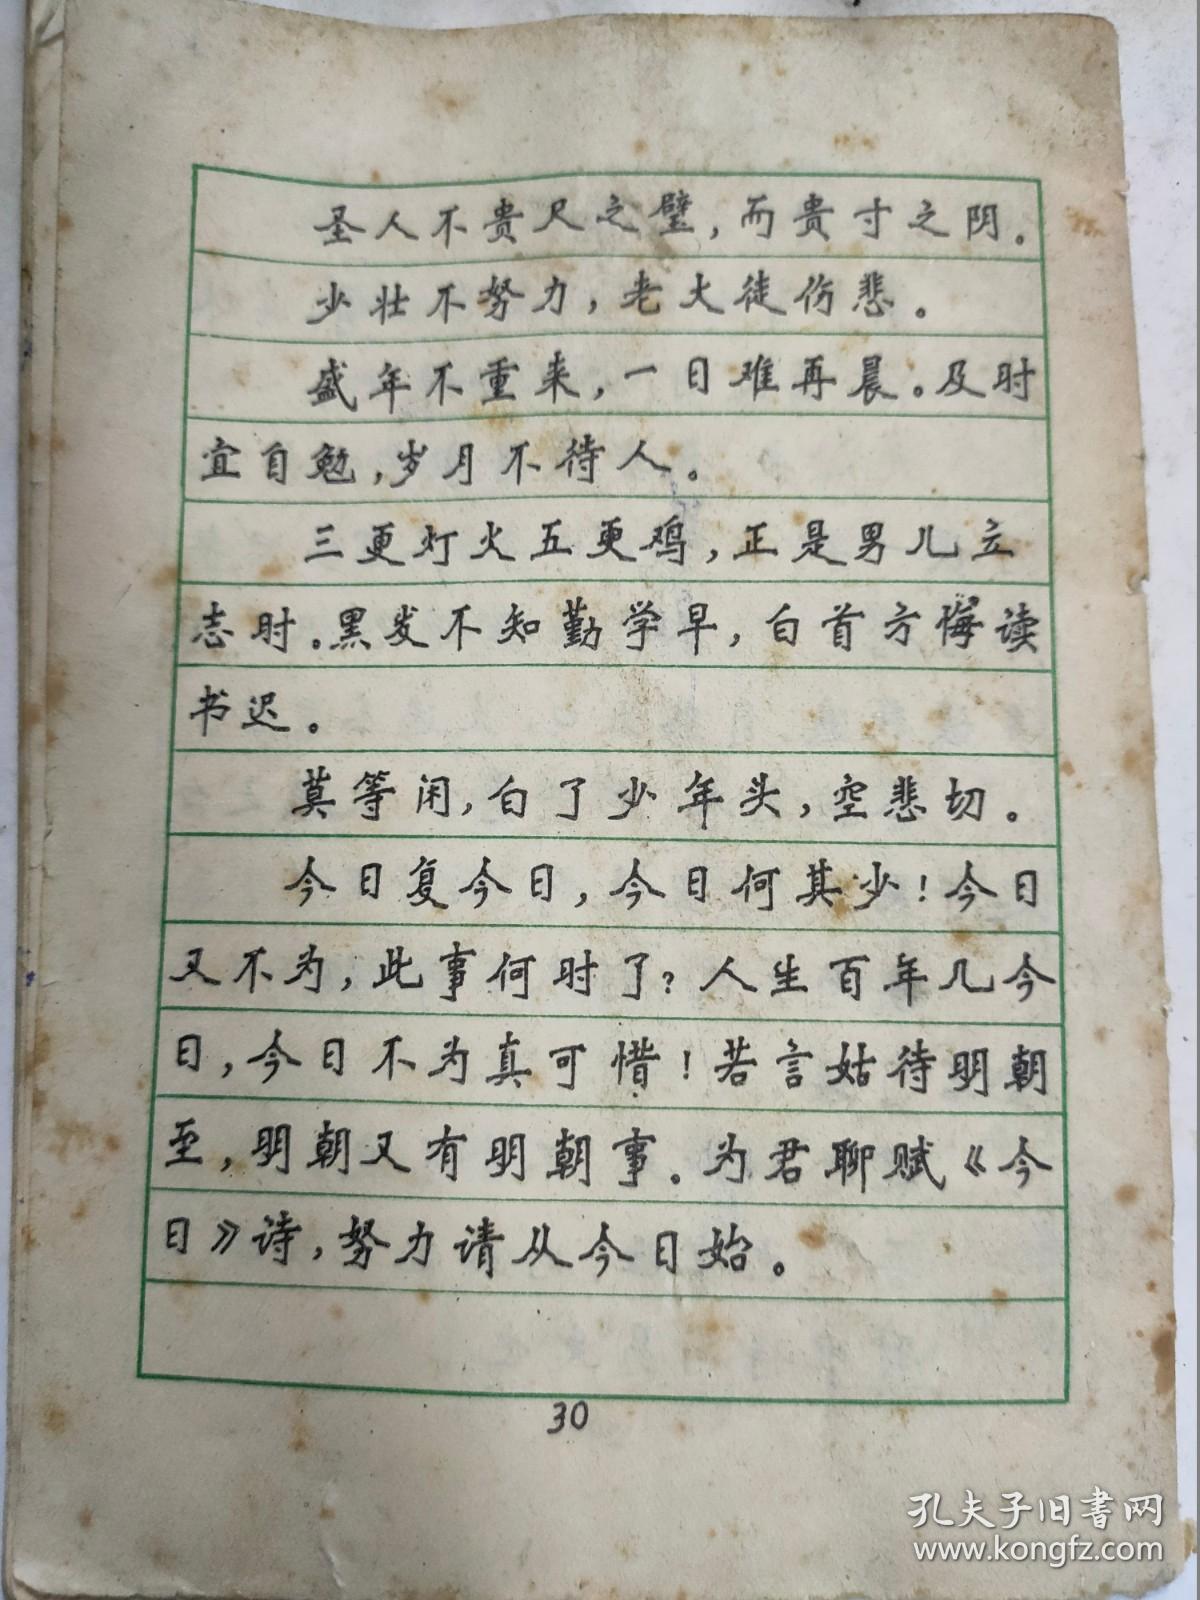 圣人不贵尺之璧，而贵寸之阴。
少壮不努力，老大徒伤悲。
盛年不重来，一日难再晨。及时
宜自勉，岁月不待人。
三更灯火五更鸡，正是男儿立
志时。黑发不知勤学早，白首方悔读
书迟。
莫等闲，白了少年头，空悲切。
今日复今日，今日何其少！今日
又不为，此事何时了？人生百年几今
日，今日不为真可惜！若言姑待明朝
至，明朝又有明朝事。为君聊赋《今
日》诗，努力请从今日始。
30
孔夫子旧书网
www.kongfz.com